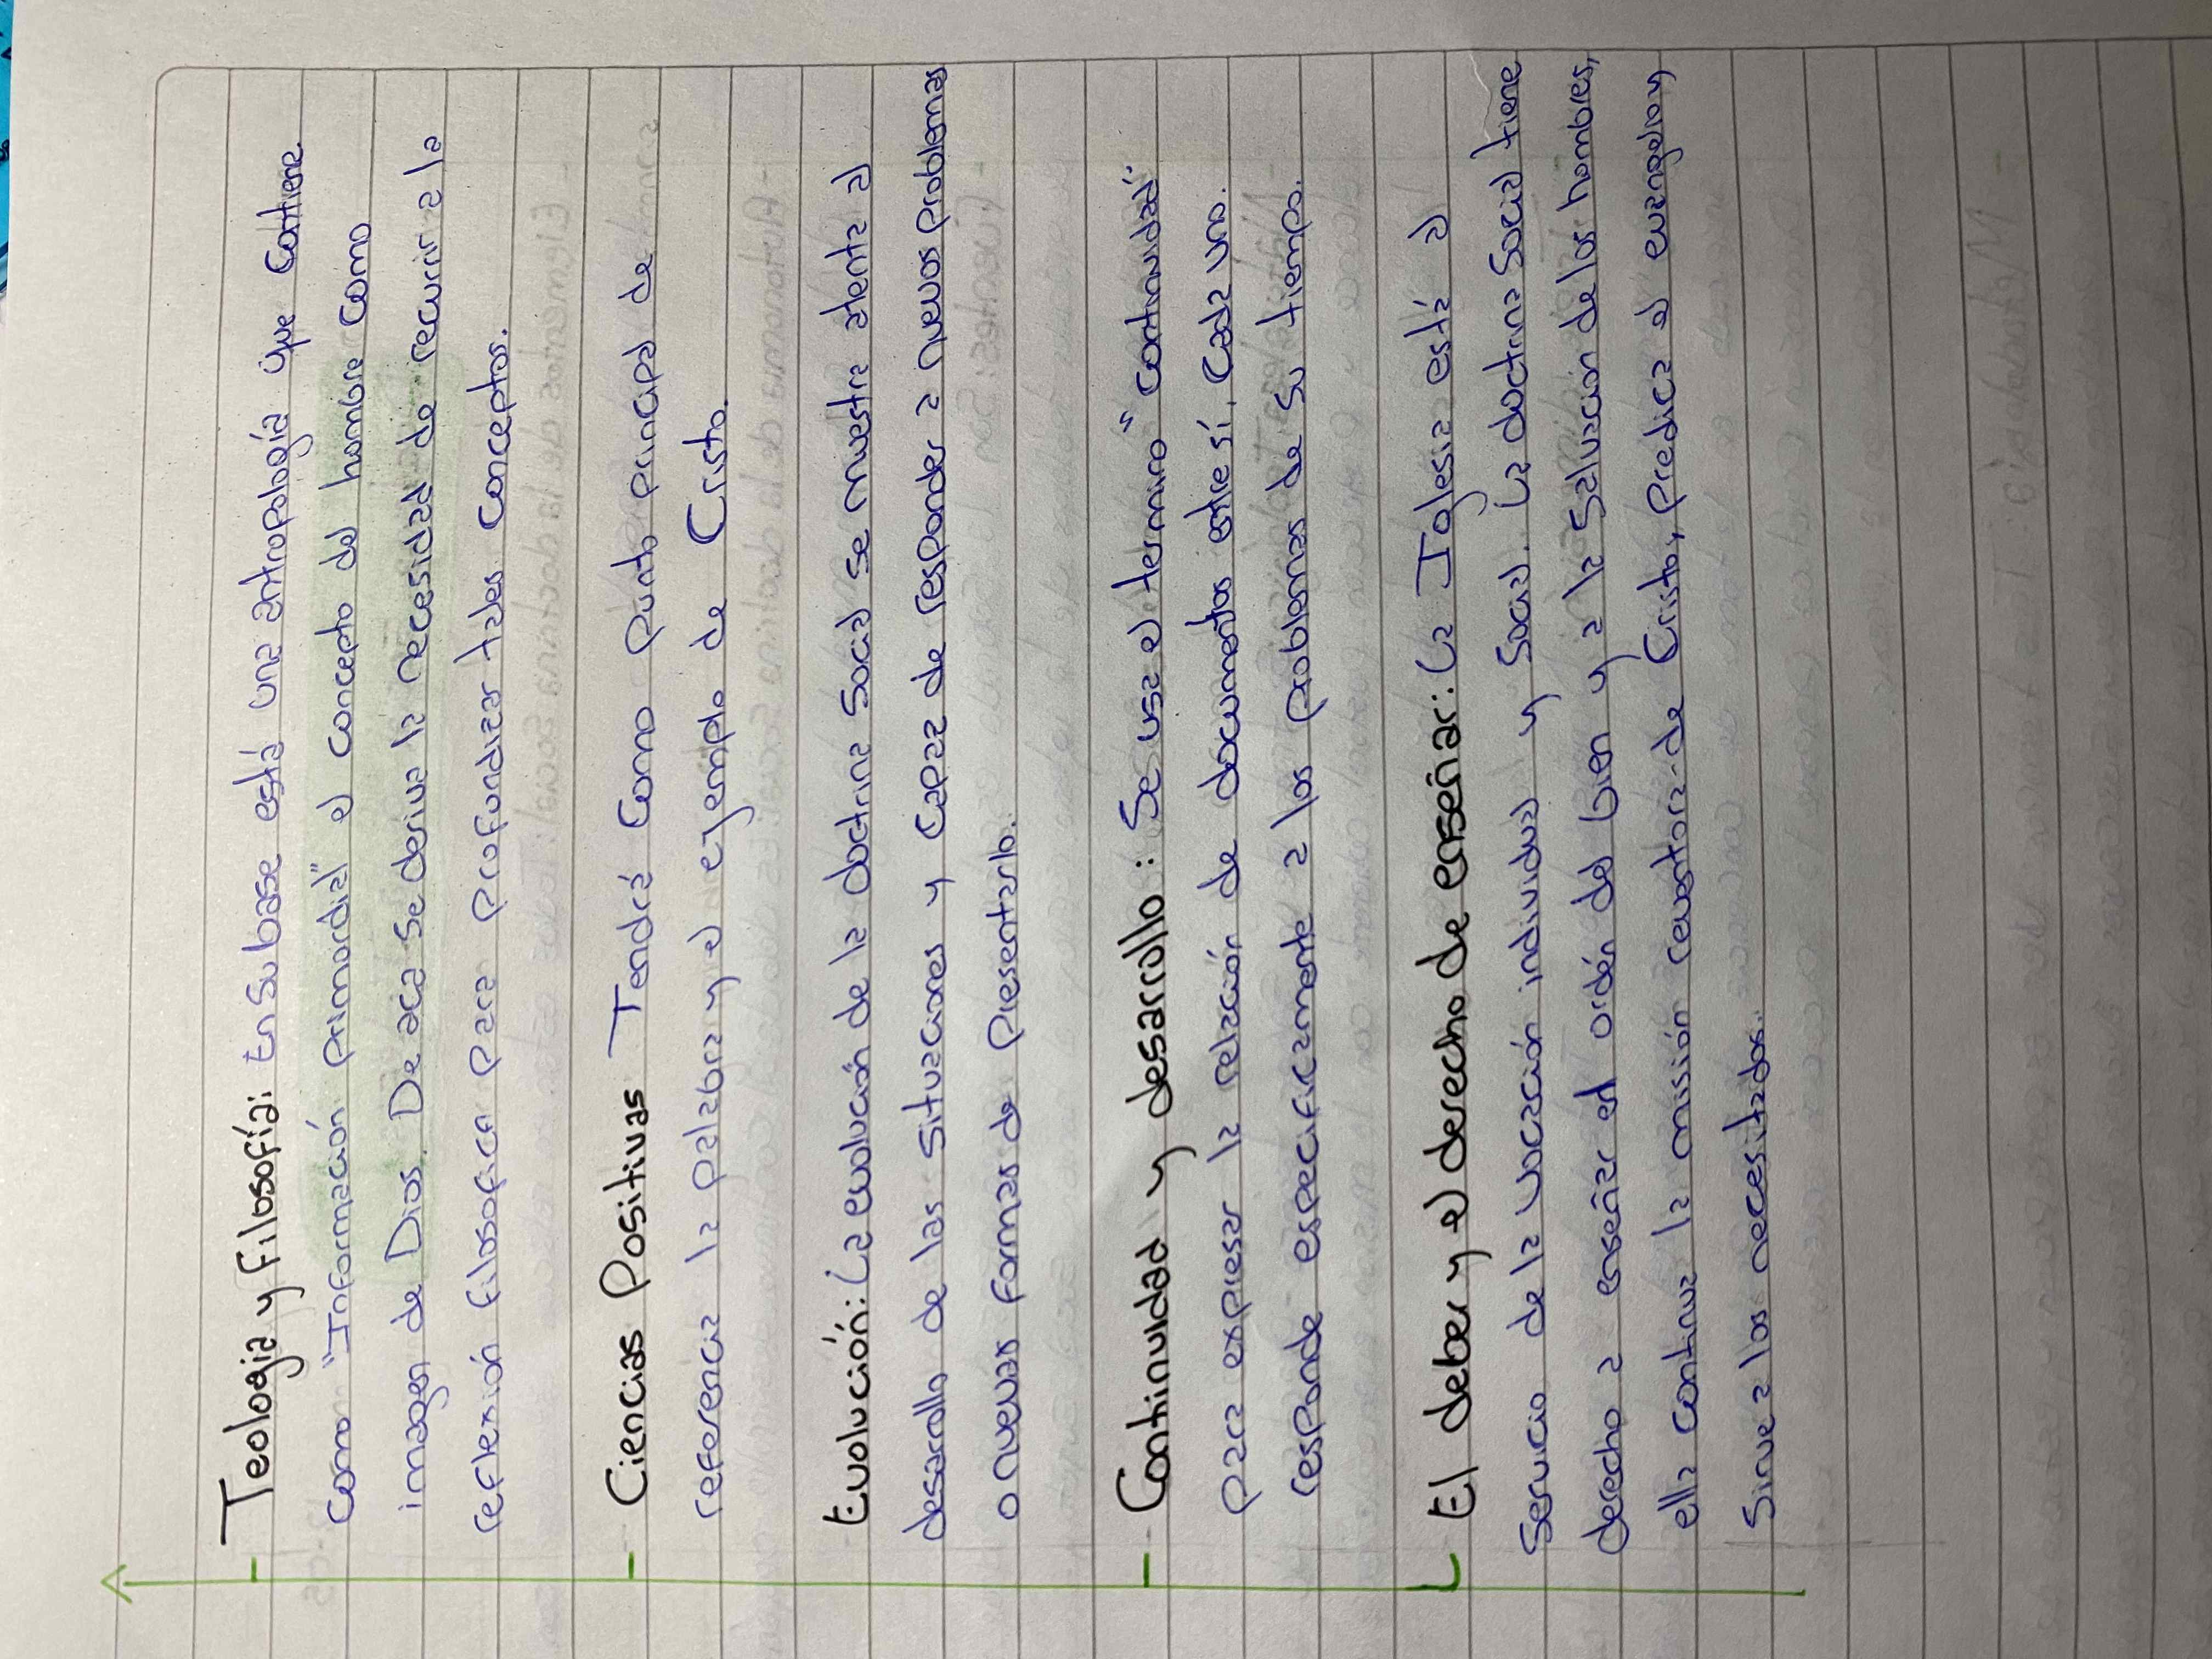 Teologia y Filosofía: En su base está una antropología que contiene
como "Información primordial" el concepto del hombre como
imagen de Dios. De aca se deriva la necesidad de recurrir a la
reflexión filosofica para profundizar tales conceptos.
Ciencias Positivas Tendrá como punto principal de
referencia la palabra y el ejemplo de Cristo.
Evolución: La evolución de la doctrina social se muestra atenta al
desarrollo de las situaciones y capaz de responder a nuevos problemas
o nuevas formas de presentarlo.
Continuidad y desarrollo: Se usa el termino "continuidad"
para expresar la relación de documentos entre sí, cada uno.
responde especificamente a los problemas de su tiempo.
El deber y el derecho de enseñar: La Iglesia está al
servicio de la vocación individual y social. La doctrina social tiene
derecho a enseñar el ordén del bien y a la salvación de los hombres,
ella continua la misión revelatora de Cristo, predica el evangelio y
sirve a los necesitados.